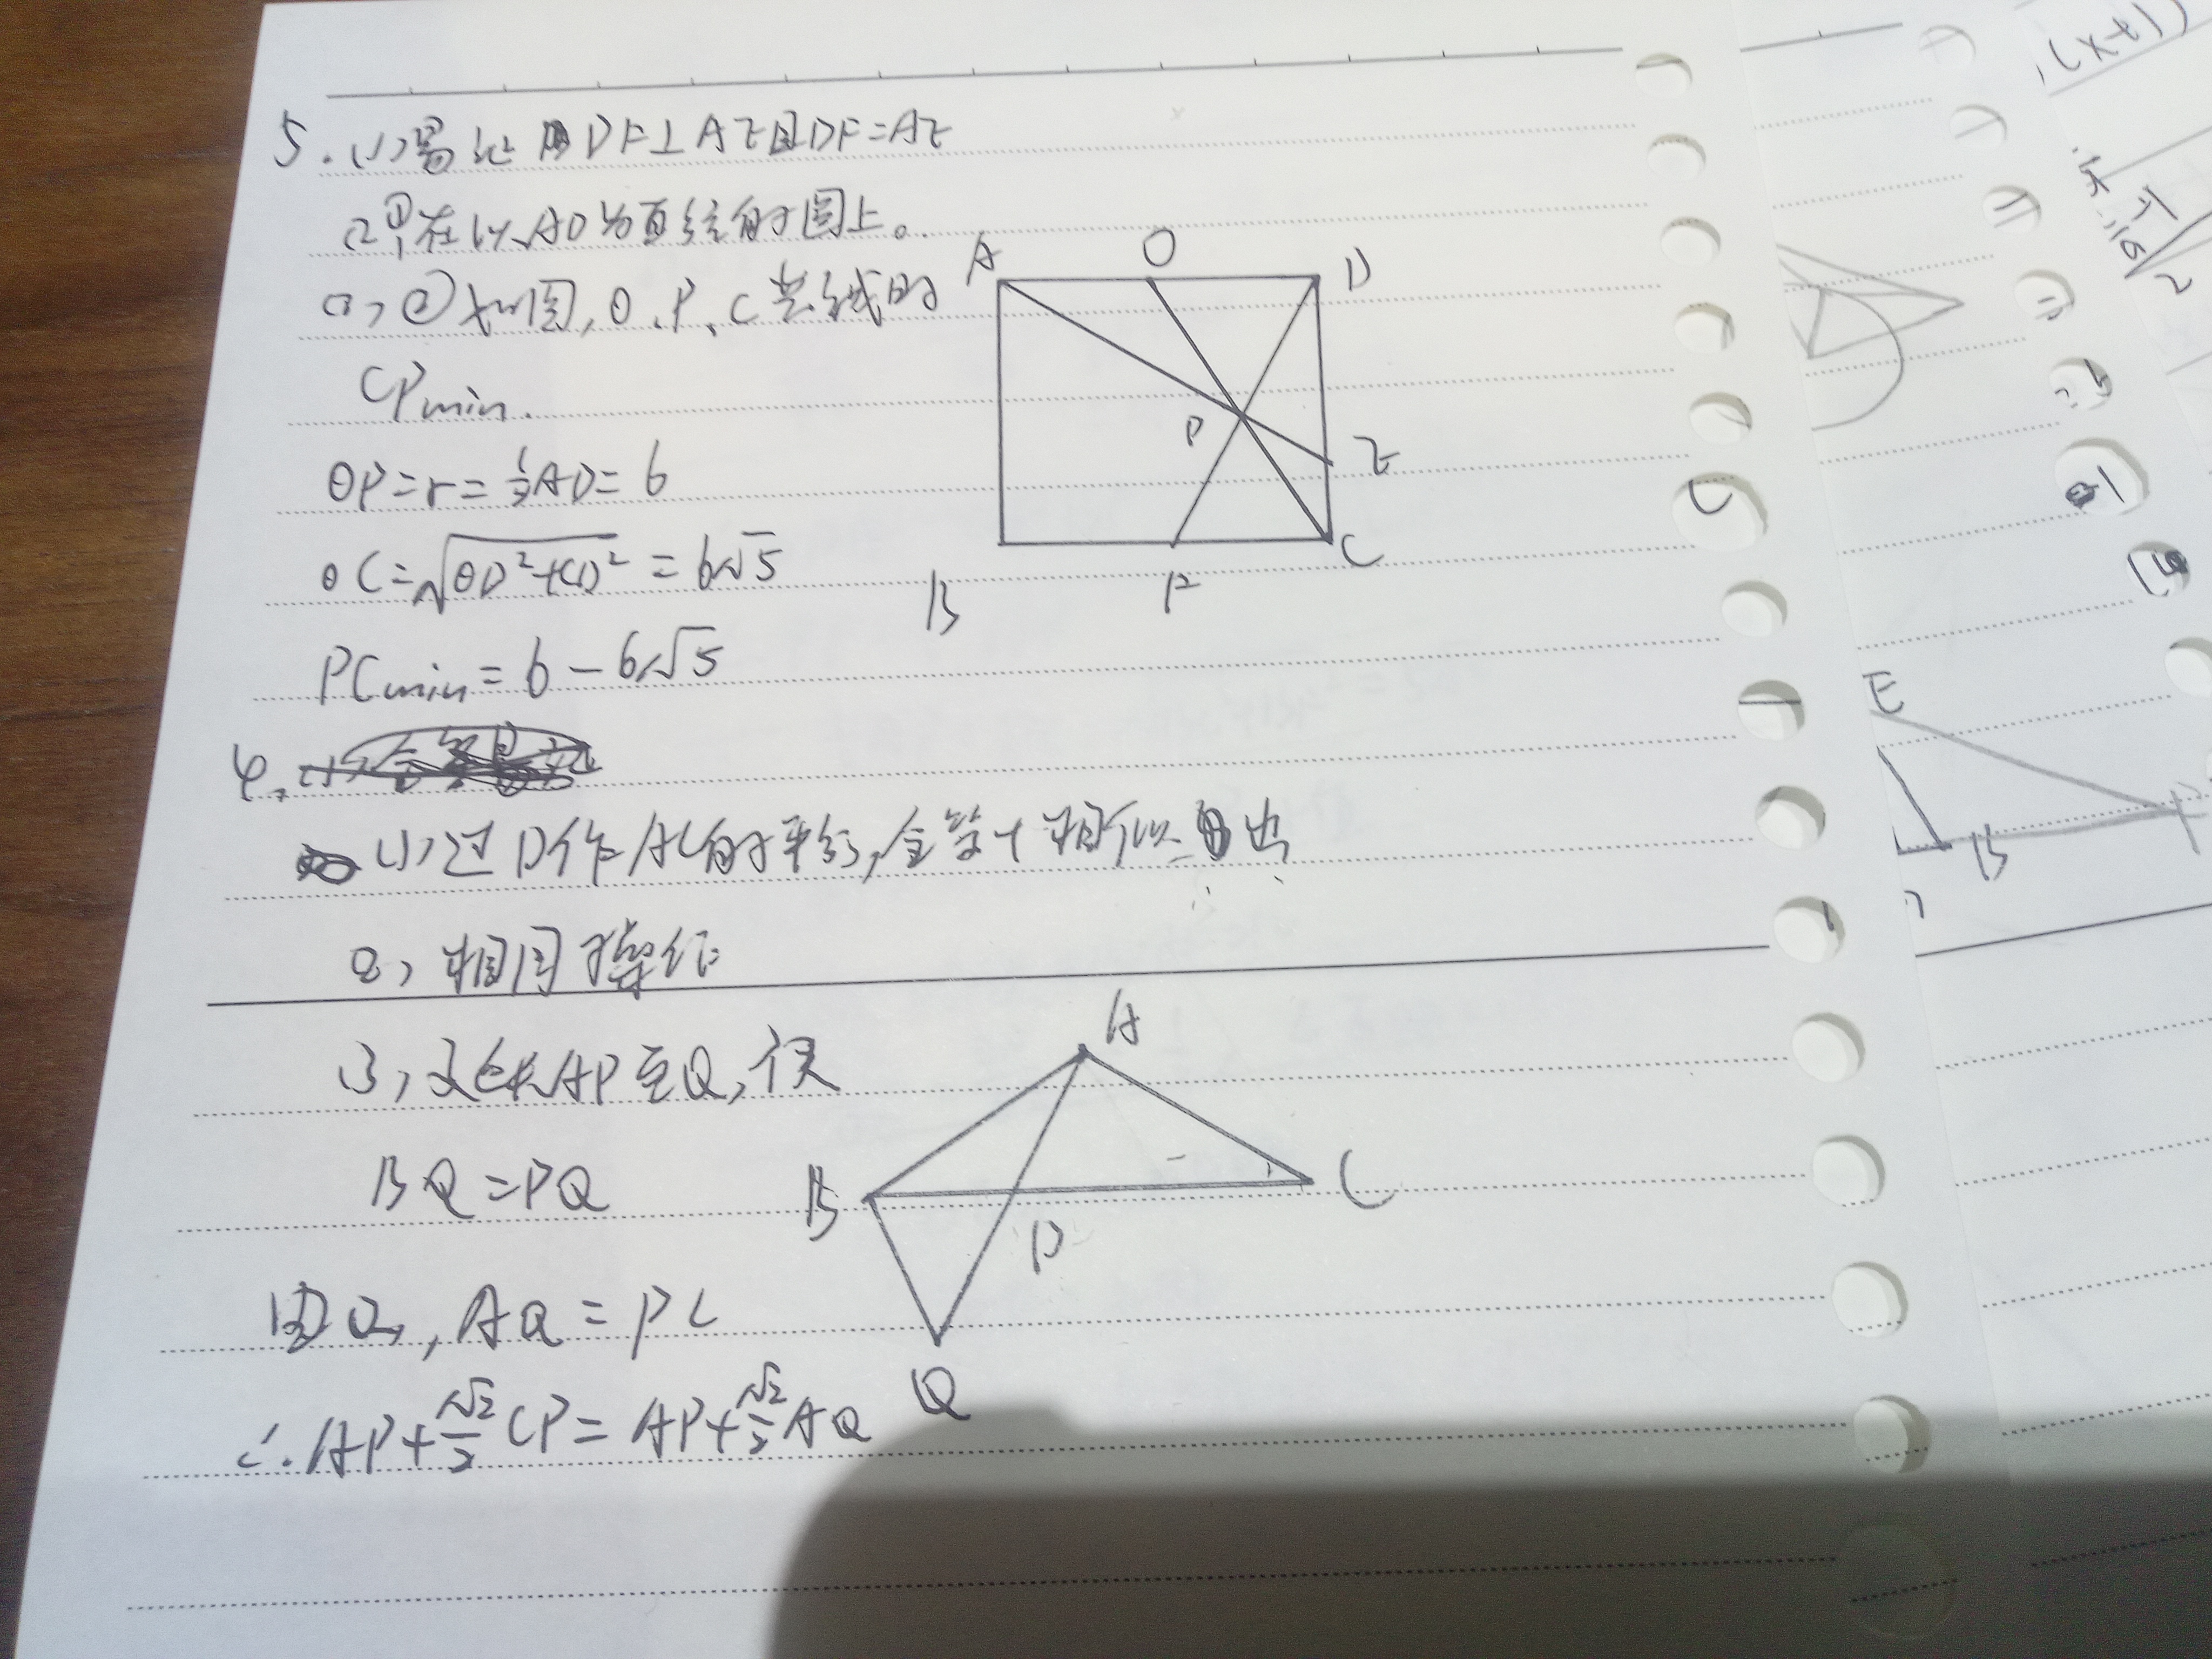 5. (1)易证 DF⊥AE且DF=AE
(2)①在以AD为直径的圆上。
(2)②如图, O、P、C共线时
CPmin.
OP=r=½AD=6
OC=√(OD²+CD²)=6√5
PCmin=6-6√5
A O D
P E
B F C
4.
(1)过D作AC的平行, 全等+相似
(2)相同操作
(3)延长AP至Q, 使
BQ=PQ
由(2), AQ=PC
∴AP+√2/2 CP=AP+√2/2 AQ
A
B P C
Q
(x+1)
E
B